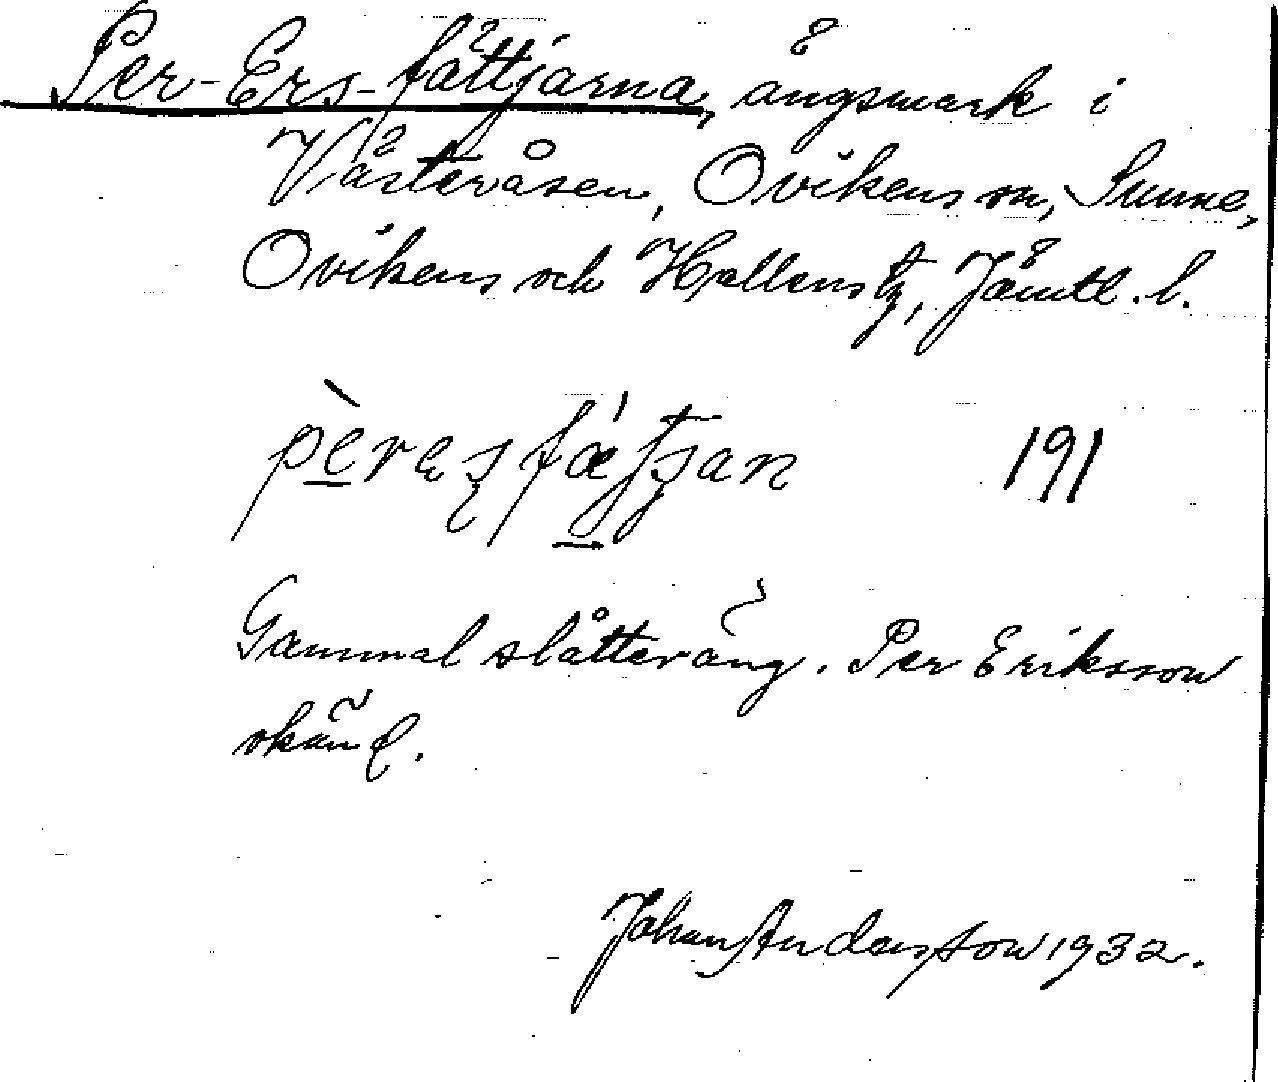 Per-Ers-fättjärna, ängsmark i
Västeråsen, Ovikens sn, Sunne,
Ovikens och Hallens tg, Jämtl. l.
191
Gammal slåtteräng. Per Eriksson
okänd.
Johan Andersson 1932.